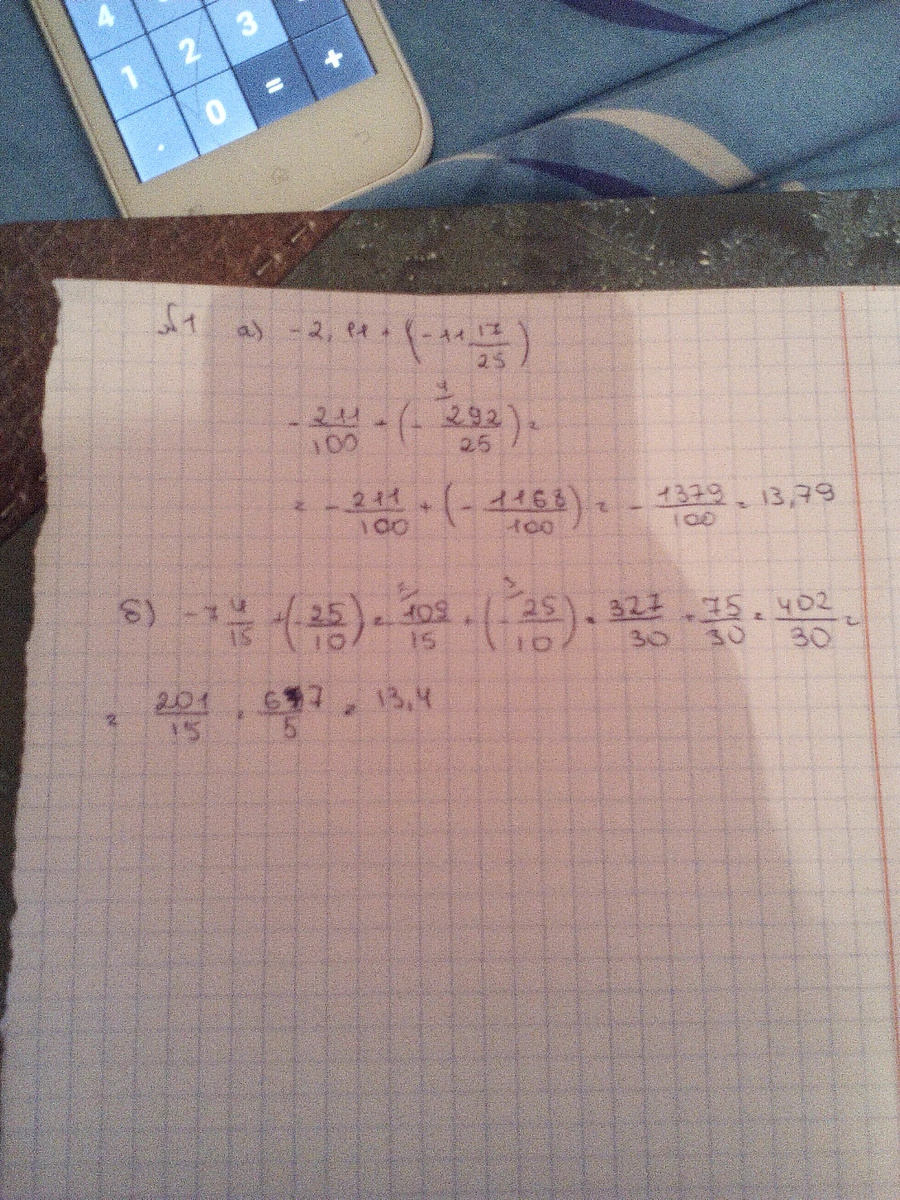 4 3
1 2 = +
. 0
№1 а) -2,11 + (-11 17/25)
-211/100 + (- 292/25) =
= - 211/100 + (- 1168/100) = - 1379/100 = 13,79
б) -7 4/15 + (-25/10) = -109/15 + (-25/10) = 327/30 + 75/30 = 402/30 =
= 201/15 = 67/5 = 13,4